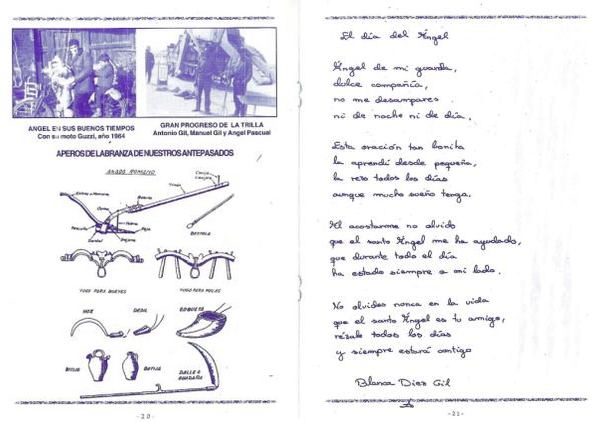 ANGEL EN SUS BUENOS TIEMPOS
Con su moto Guzzi, año 1964
GRAN PROGRESO DE LA TRILLA
Antonio Gil, Manuel Gil y Angel Pascual
APEROS DE LABRANZA DE NUESTROS ANTEPASADOS
ARADO ROMANO
Timón
Esteva o Mancera
Cama
Pescuño
Dental
Reja
BESTOLA
YUGO PARA BUEYES
YUGO PARA MULAS
HOZ
DEDIL
ZOQUETA
BOTIJO
BOTIJA
DALLE O
GUADAÑA
-20-
El día del Ángel
Ángel de mi guarda,
dulce compañía,
no me desampares
ni de noche ni de día.
Esta oración tan bonita
la aprendí desde pequeña,
la rezo todos los días
aunque mucho sueño tenga.
Al acostarme no olvido
que el santo Ángel me ha ayudado,
que durante todo el día
ha estado siempre a mi lado.
No olvides nunca en la vida
que el santo Ángel es tu amigo,
rézale todos los días
y siempre estará contigo
Blanca Diez Gil
-21-